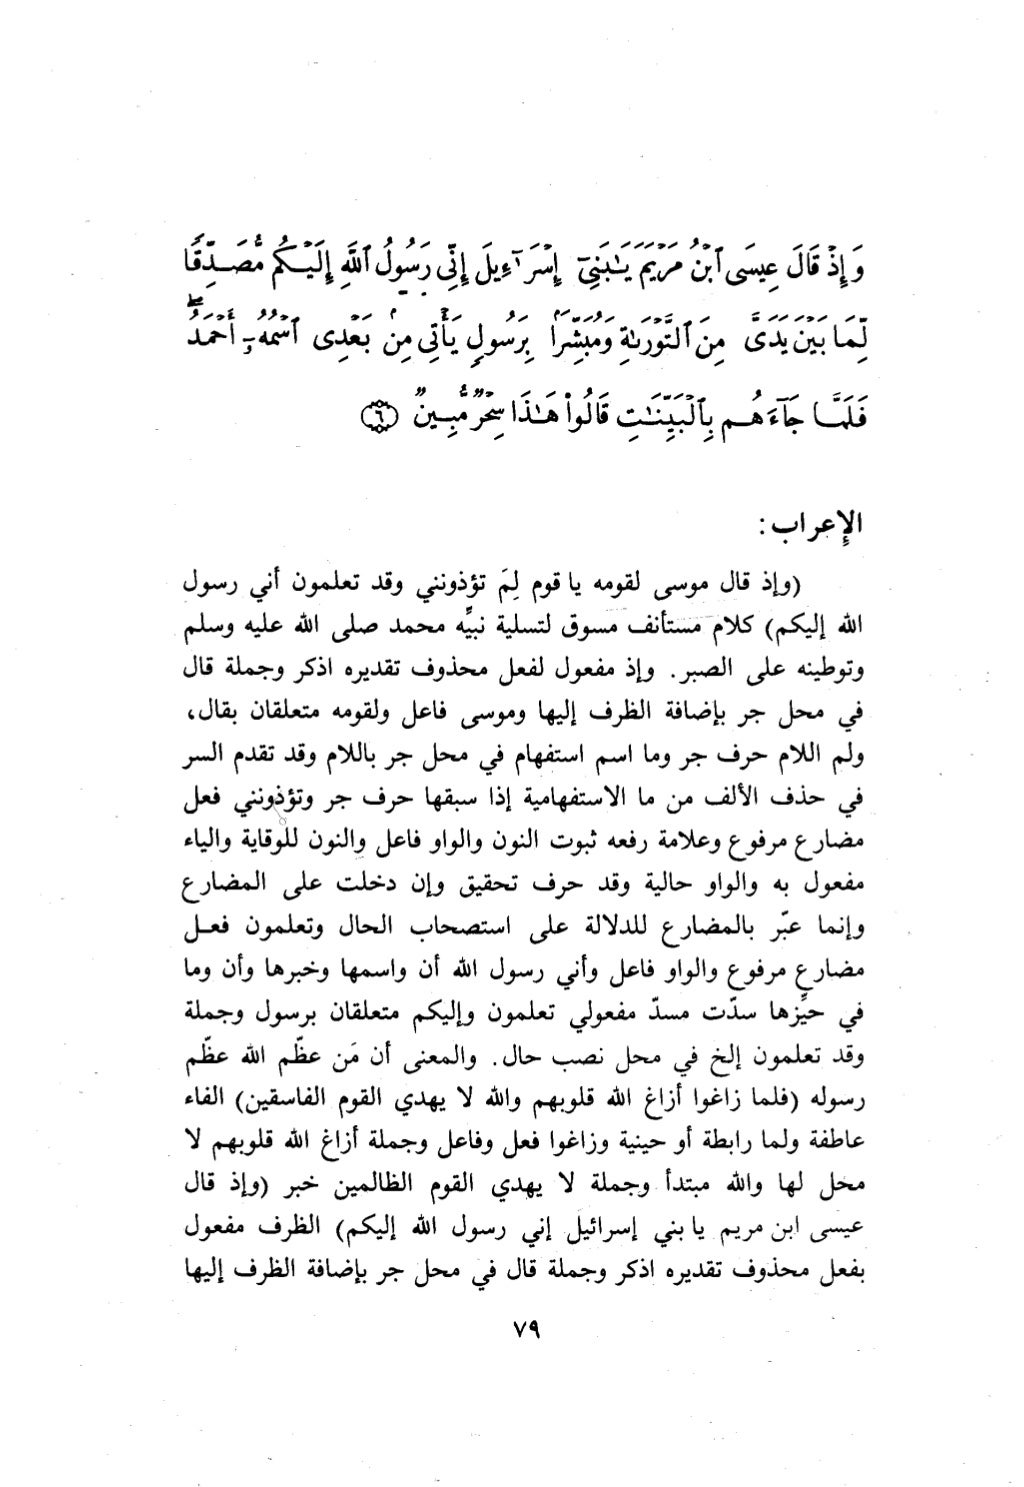 وَإِذْ قَالَ عِيسَى ٱبْنُ مَرْيَمَ يَـٰبَنِىٓ إِسْرَٰٓءِيلَ إِنِّى رَسُولُ ٱللَّهِ إِلَيْكُم مُّصَدِّقًا
لِّمَا بَيْنَ يَدَىَّ مِنَ ٱلتَّوْرَىٰةِ وَمُبَشِّرًۢا بِرَسُولٍ يَأْتِى مِنۢ بَعْدِى ٱسْمُهُۥٓ أَحْمَدُ ۖ
فَلَمَّا جَآءَهُم بِٱلْبَيِّنَـٰتِ قَالُوا۟ هَـٰذَا سِحْرٌ مُّبِينٌ ٦
الإِعراب:
(وإذ قال موسى لقومه يا قوم لِمَ تؤذونني وقد تعلمون أني رسول
الله إليكم) كلام مستأنف مسوق لتسلية نبيِّه محمد صلى الله عليه وسلم
وتوطينه على الصبر. وإذ مفعول لفعل محذوف تقديره اذكر وجملة قال
في محل جر بإضافة الظرف إليها وموسى فاعل ولقومه متعلقان بقال،
ولم اللام حرف جر وما اسم استفهام في محل جر باللام وقد تقدم السر
في حذف الألف من ما الاستفهامية إذا سبقها حرف جر وتؤذونني فعل
مضارع مرفوع وعلامة رفعه ثبوت النون والواو فاعل والنون للوقاية والياء
مفعول به والواو حالية وقد حرف تحقيق وإن دخلت على المضارع
وإنما عبّر بالمضارع للدلالة على استصحاب الحال وتعلمون فعل
مضارع مرفوع والواو فاعل وأني رسول الله أن واسمها وخبرها وأن وما
في حيِّزها سدّت مسدّ مفعولي تعلمون وإليكم متعلقان برسول وجملة
وقد تعلمون إلخ في محل نصب حال. والمعنى أن مَن عظّم الله عظّم
رسوله (فلما زاغوا أزاغ الله قلوبهم والله لا يهدي القوم الفاسقين) الفاء
عاطفة ولما رابطة أو حينية وزاغوا فعل وفاعل وجملة أزاغ الله قلوبهم لا
محل لها والله مبتدأ وجملة لا يهدي القوم الظالمين خبر (وإذ قال
عيسى ابن مريم يا بني إسرائيل إني رسول الله إليكم) الظرف مفعول
بفعل محذوف تقديره اذكر وجملة قال في محل جر بإضافة الظرف إليها
٧٩